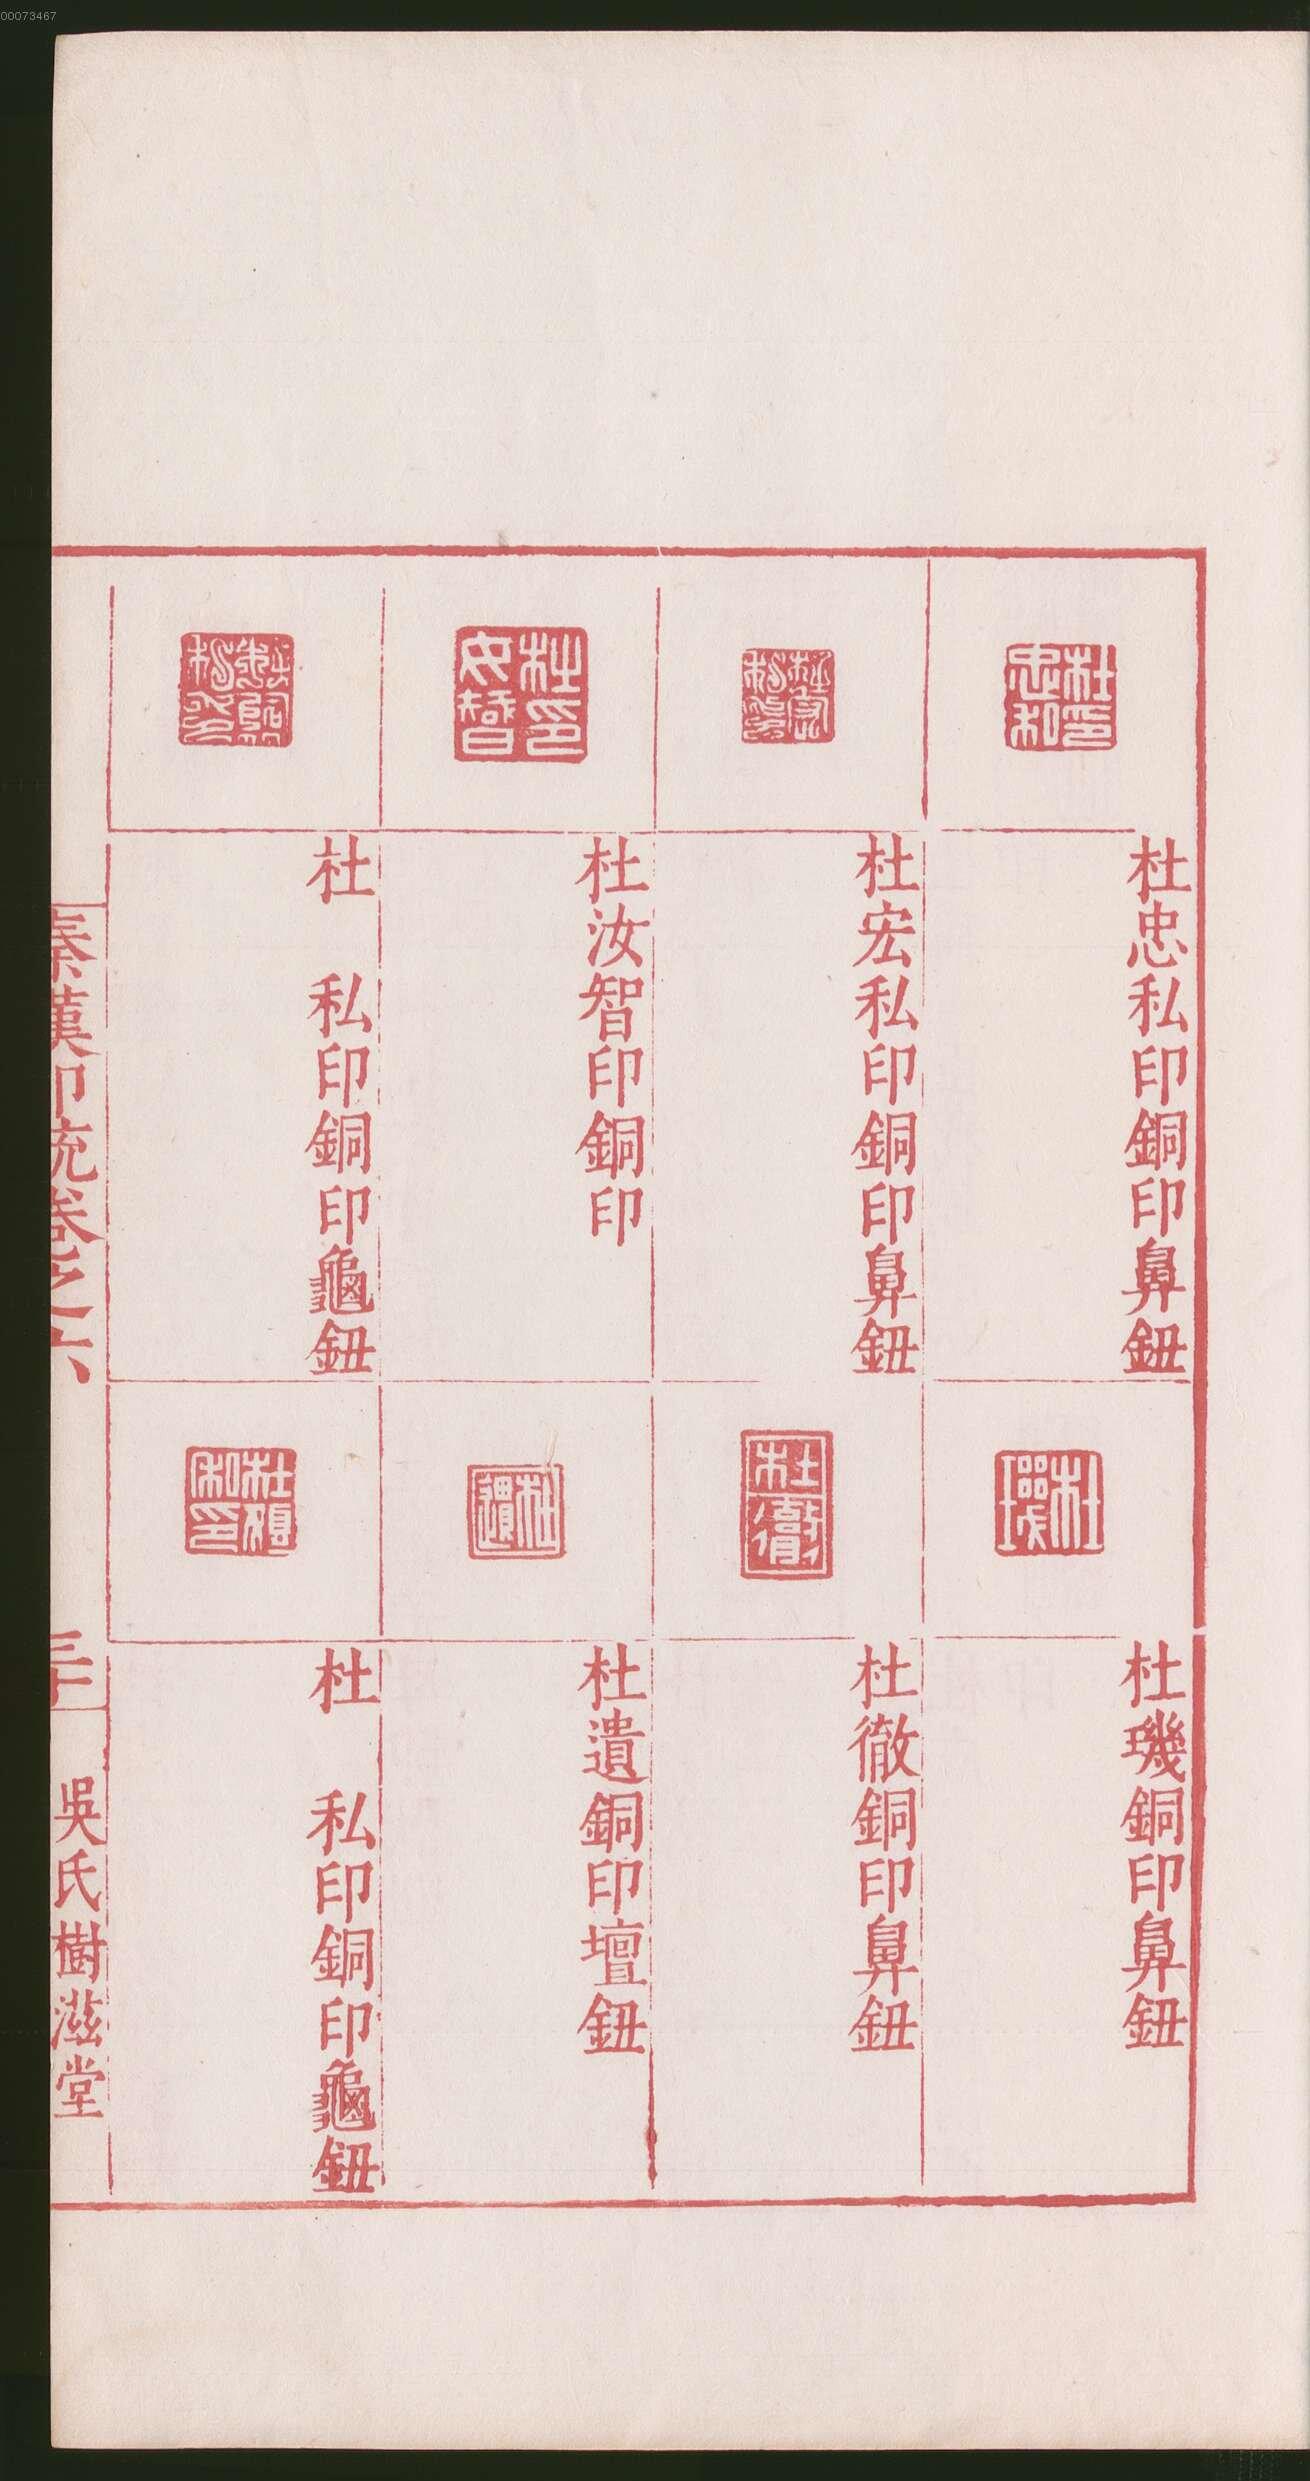 00073467
杜忠私印銅印鼻鈕
杜宏私印銅印鼻鈕
杜汝智印銅印
杜　私印銅印龜鈕
杜璣銅印鼻鈕
杜徹銅印鼻鈕
杜遺銅印壇鈕
杜　私印銅印龜鈕
秦漢印統卷之六
三十
吳氏樹滋堂